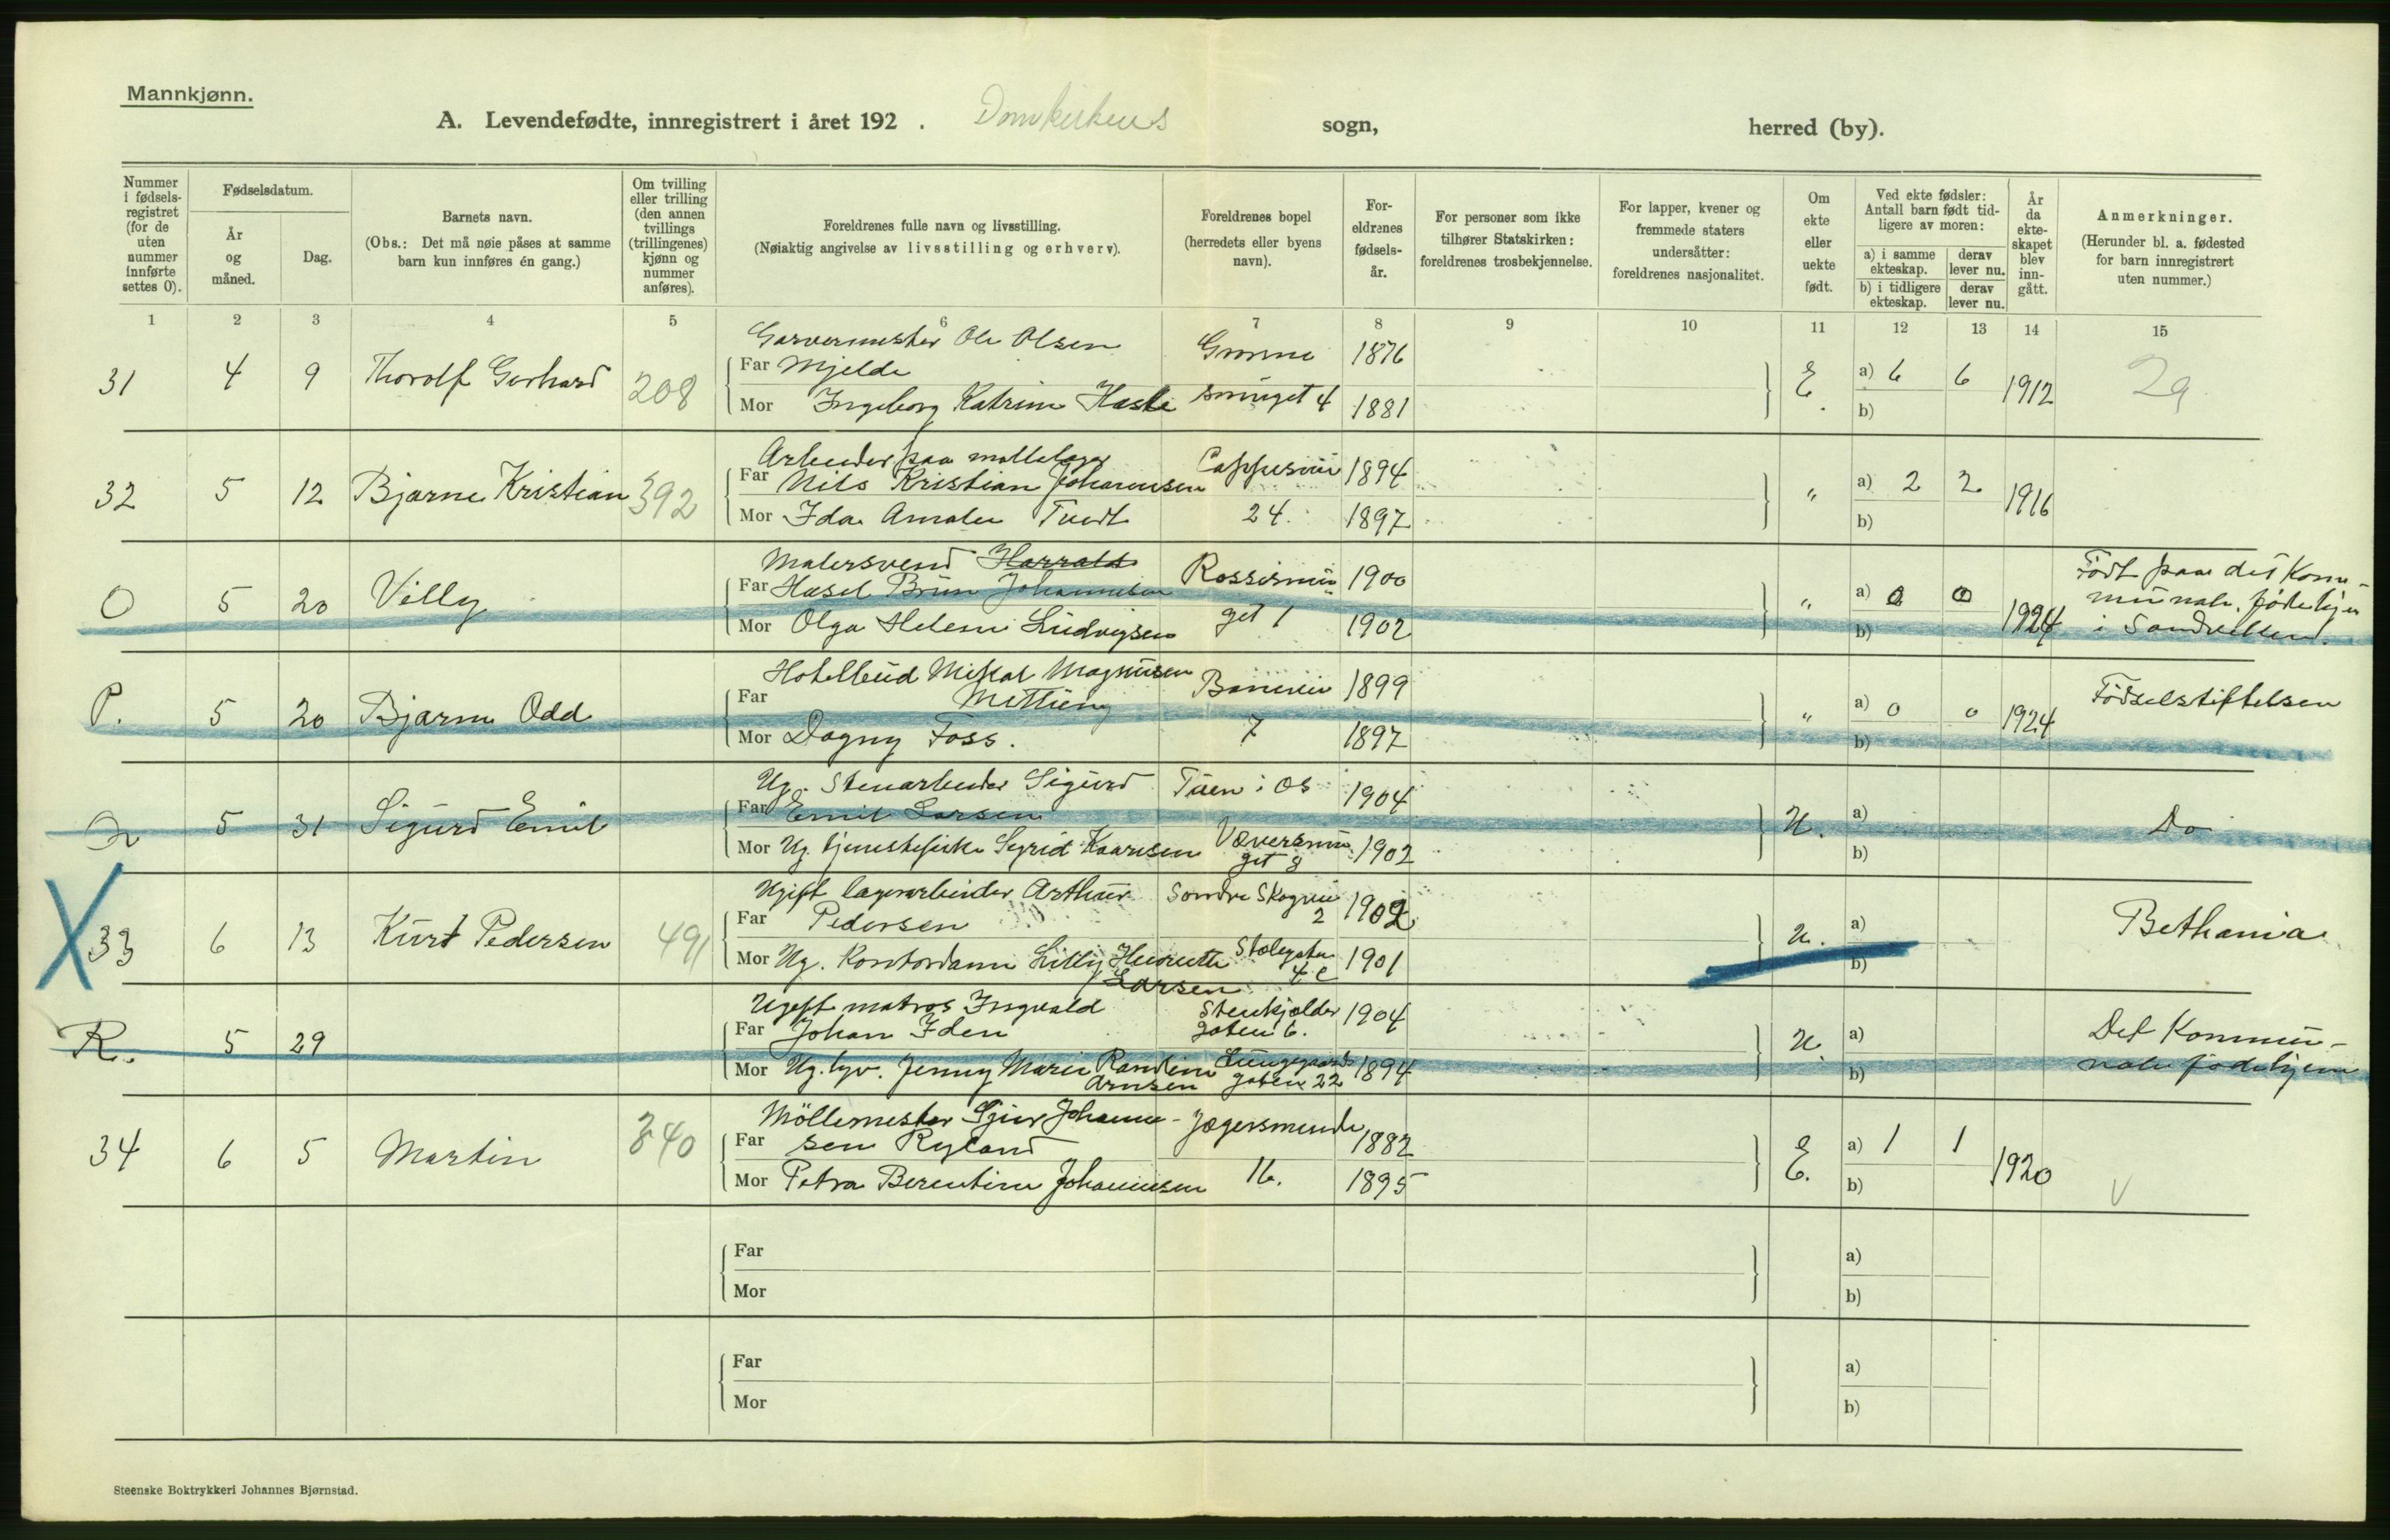 Mannkjønn.
A. Levendefødte, innregistrert i året 192 . Domkirkens sogn, herred (by).
Nummer i fødselsregistret (for de uten nummer innførte settes 0).
Fødselsdatum.
År og måned.
Dag.
Barnets navn.
(Obs.: Det må nøie påses at samme barn kun innføres én gang.)
Om tvilling eller trilling (den annen tvillings (trillingenes) kjønn og nummer anføres).
Foreldrenes fulle navn og livsstilling.
(Nøiaktig angivelse av livsstilling og erhverv).
Foreldrenes bopel (herredets eller byens navn).
Foreldrenes fødselsår.
For personer som ikke tilhører Statskirken: foreldrenes trosbekjennelse.
For lapper, kvener og fremmede staters undersåtter: foreldrenes nasjonalitet.
Om ekte eller uekte født.
Ved ekte fødsler: Antall barn født tidligere av moren:
a) i samme ekteskap. derav lever nu.
b) i tidligere ekteskap. derav lever nu.
År da ekteskapet blev inngått.
Anmerkninger.
(Herunder bl. a. fødested for barn innregistrert uten nummer.)
1 2 3 4 5 6 7 8 9 10 11 12 13 14 15
Garvermester Ole Olsen
31 4 9 Thorolf Gerhard 208 Far Mjelde 1876 E. a) 6 6 1912 29
Mor Ingeborg Katrine smuget 4 1881 b)
Arbeider paa
32 5 12 Bjarne Kristian 392 Far Nils Kristian Johannesen 1894 " a) 2 2 1916
Mor Ida Amalie Tvedt 24. 1897 b)
Malersvend Harrald
O 5 20 Villy Far Hasel Brun Johannesen Rossesmu- 1900 " a) 0 0 1924 Født paa det Kom-
Mor Olga Helene Ludvigsen get 1 1902 b) munale fødehjem
i Sandviken.
Hotelbud Magnusen
P. 5 20 Bjarne Odd Far 1899 " a) 0 0 1924 Fødselstiftelsen
Mor Dagny Foss. 7 1897 b)
Ug. Stenarbeider Sigurd
5 31 Sigurd Emil Far Emil Larsen i Os 1904 U. a) Do
Mor Ug. tjenestepike Sigrid Væversmu- get 8 1902 b)
Ugift lagerarbeider Arthur
33 6 13 Kurt Pedersen 491 Far Pedersen Søndre Skogvei 2 1902 u. a) Bethania
Mor Ug. Kontordame Lilly Henriette Larsen Stølegaten 4 c 1901 b)
Ugift matros Ingvald
R. 5 29 Far Johan Iden Stenkjelder gaten 6. 1904 u. a) Det Kommu-
Mor Ug. syv. Jenny Marie Arnsen Lungegaards gaten 22 1894 b) nale fødehjem
Møllemester Sjur Johanne-
34 6 5 Martin 340 Far sen Ryland 1882 E. a) 1 1 1920
Mor Petra Berentine Johannesen 16. 1895 b) V
Far a)
Mor b)
Far a)
Mor b)
Steenske Boktrykkeri Johannes Bjørnstad.